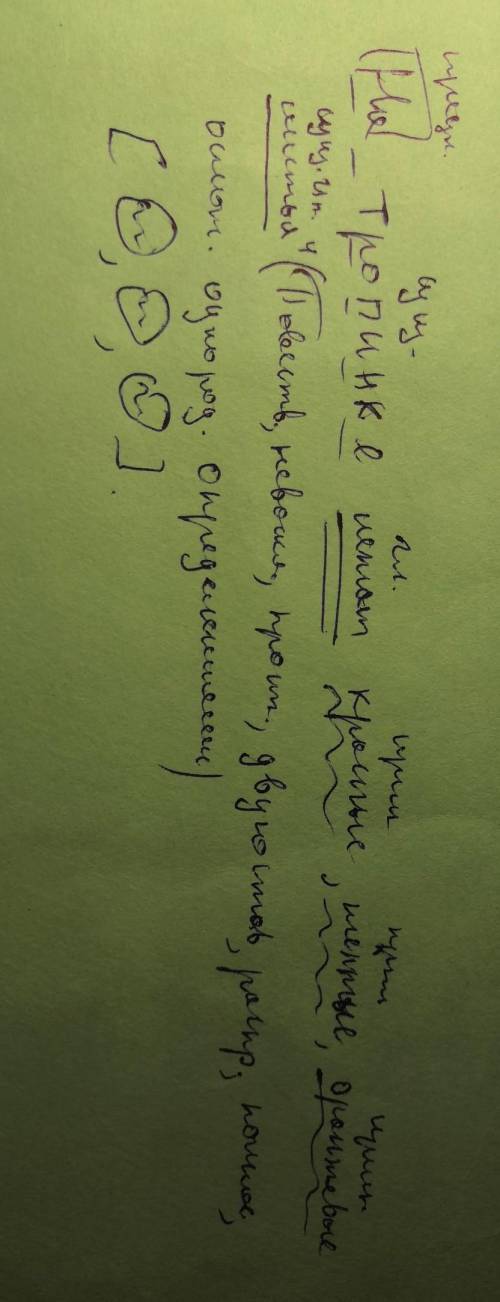 предл. сущ. гл. прил прил прил
На тропинке лежат красные, желтые, оранжевые
сущ. Им.
листья ч (Повеств, невоскл, прост, двусостав, распр, полное,
ослож. однород. определениями)
[ , , ].